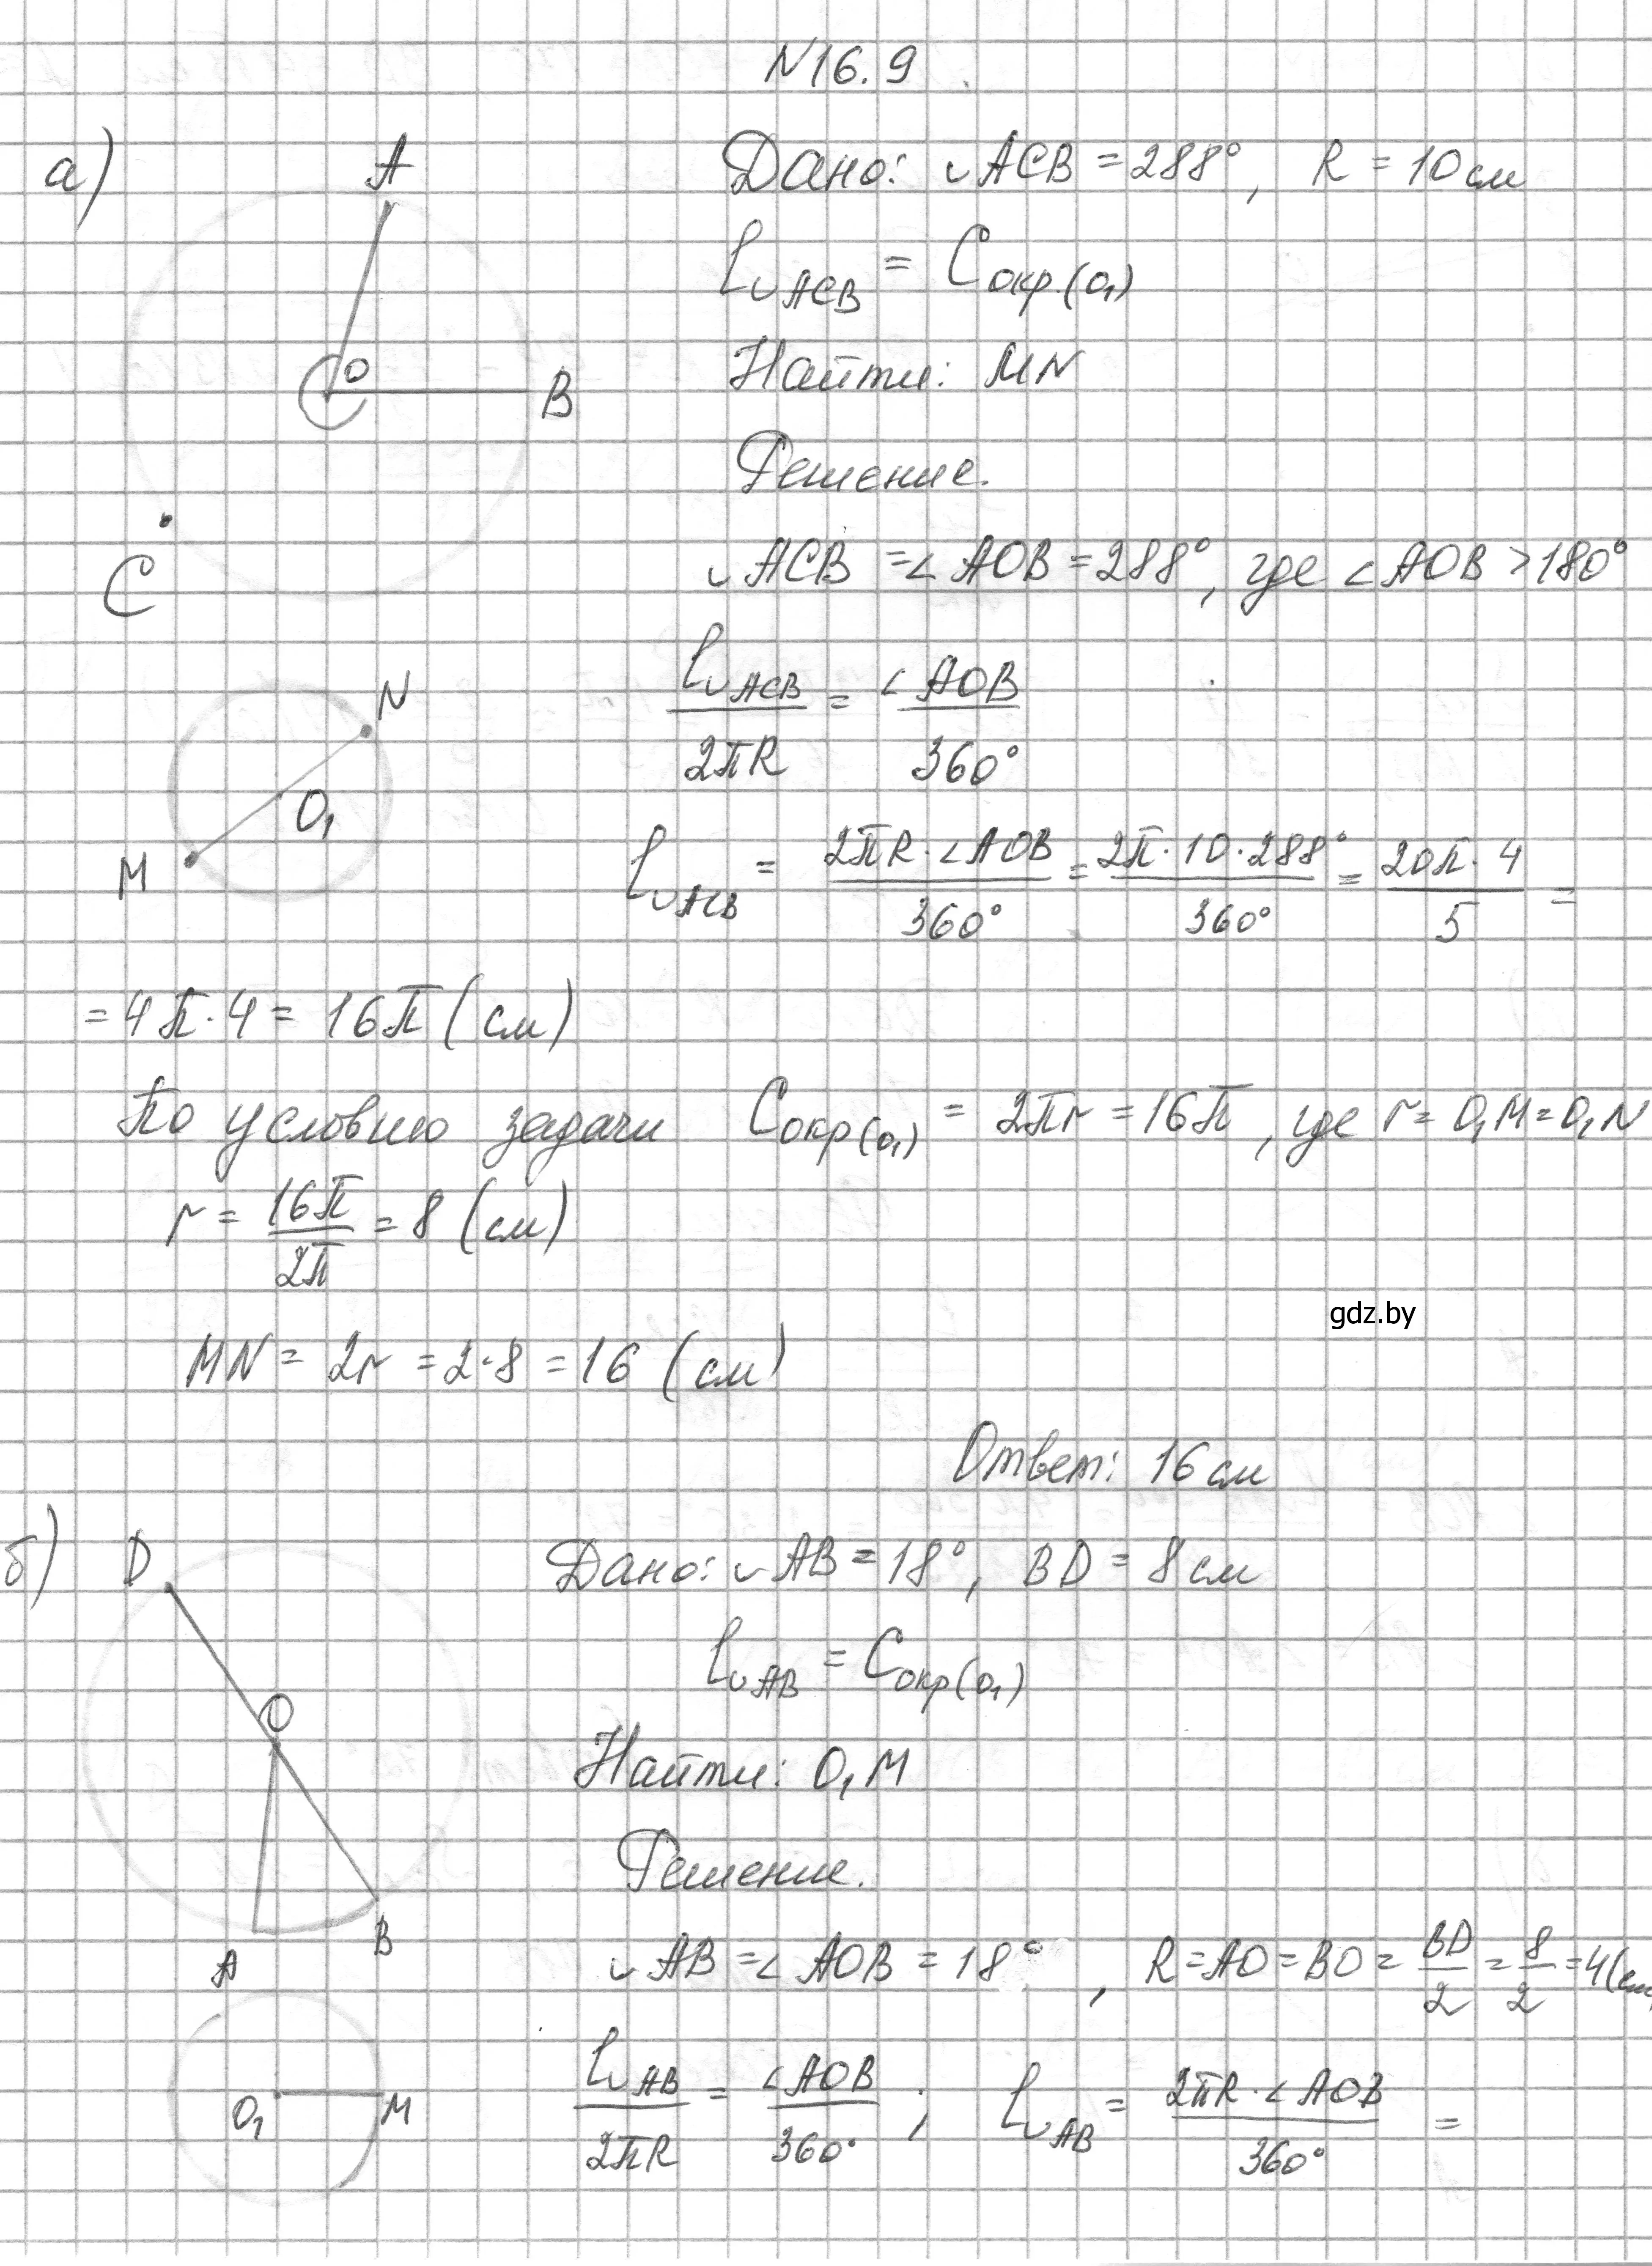 N16.9
а)
A
O
B
C
Дано: ◡ACB = 288°, R = 10 см
l◡ACB = Cокр.(O₁)
Найти: MN
Решение.
◡ACB = ∠AOB = 288°, где ∠AOB > 180°
N
O₁
M
l◡ACB / 2πR = ∠AOB / 360°
l◡ACB = 2πR·∠AOB / 360° = 2π·10·288° / 360° = 20π·4 / 5 =
= 4π·4 = 16π (см)
По условию задачи Cокр(O₁) = 2πr = 16π, где r = O₁M = O₁N
r = 16π / 2π = 8 (см)
gdz.by
MN = 2r = 2·8 = 16 (см)
Ответ: 16 см
б)
D
O
A
B
Дано: ◡AB = 18°, BD = 8 см
l◡AB = Cокр(O₁)
Найти: O₁M
Решение.
◡AB = ∠AOB = 18°, R = AO = BO = BD / 2 = 8 / 2 = 4 (см
O₁
M
l◡AB / 2πR = ∠AOB / 360° ; l◡AB = 2πR·∠AOB / 360° =